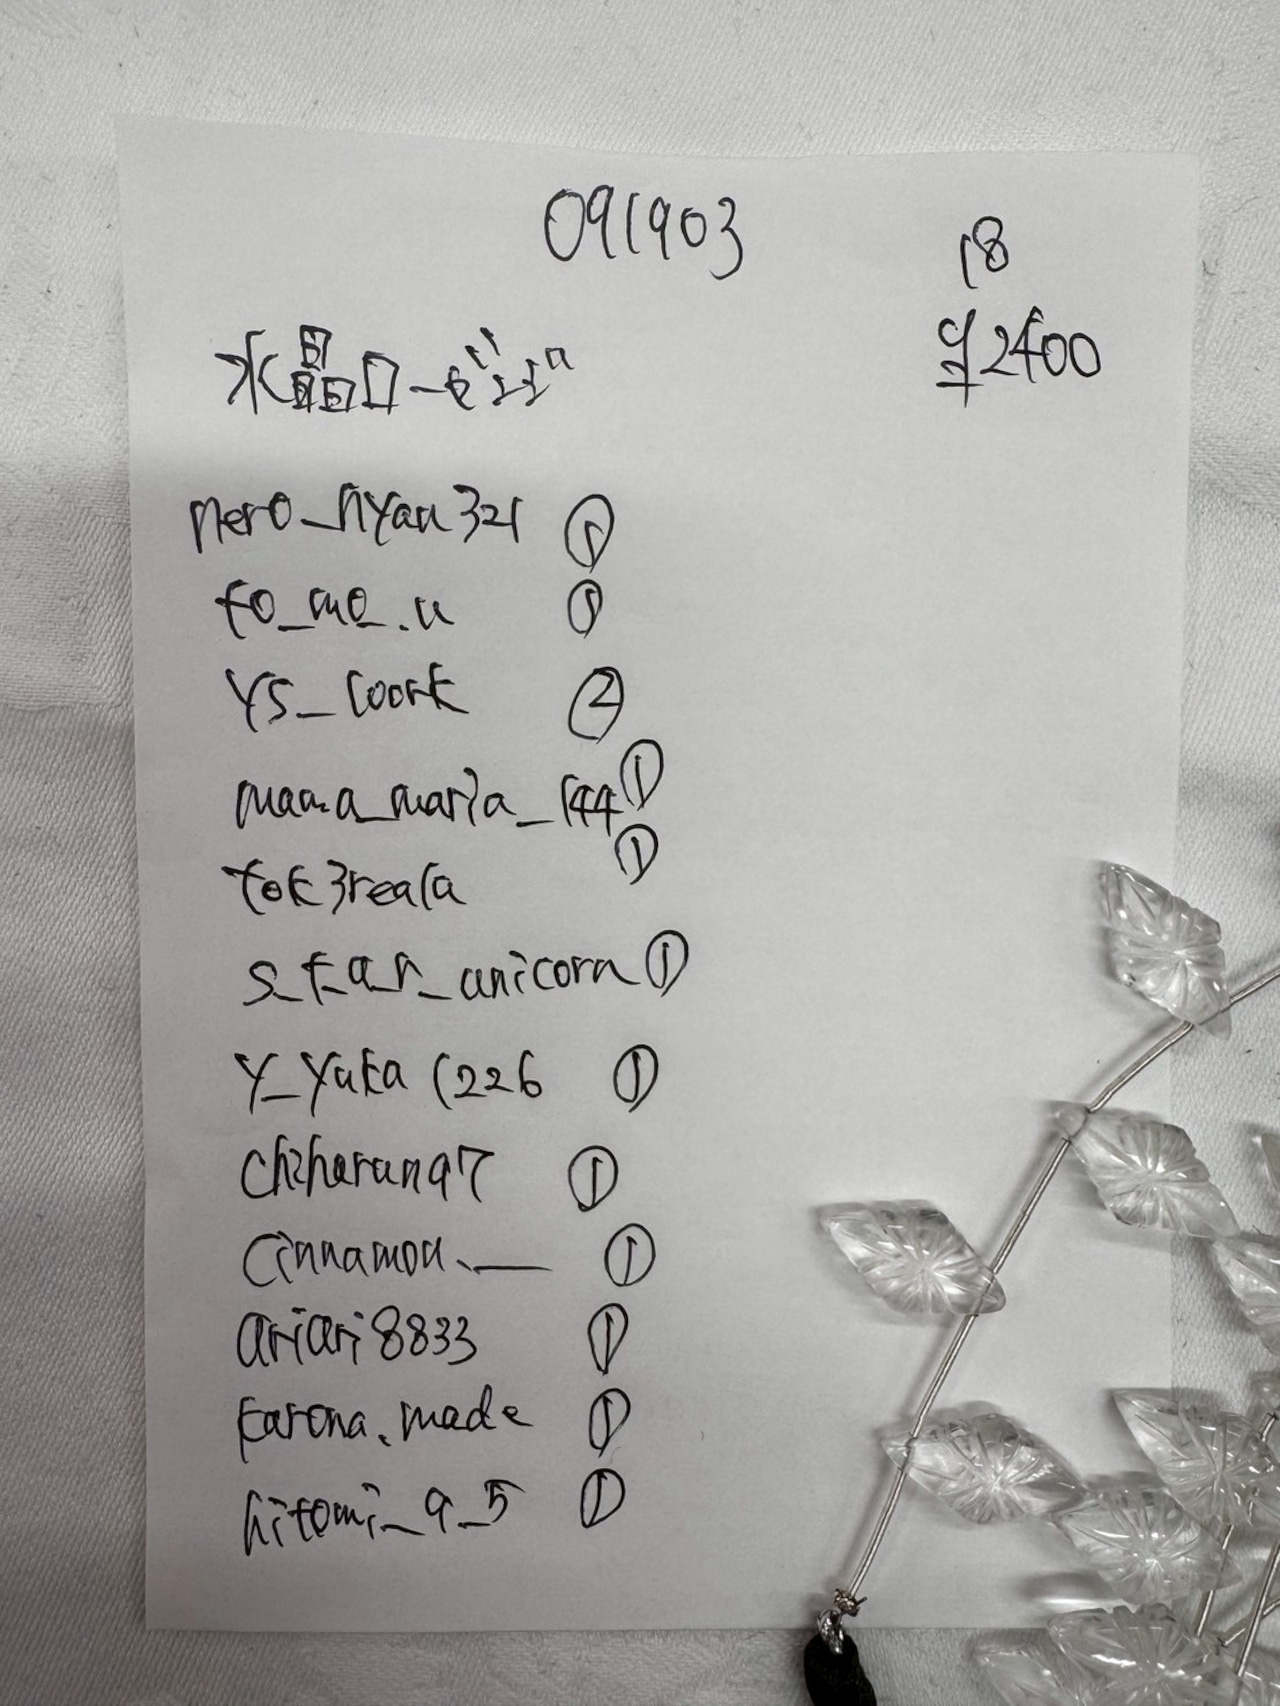 091903
18
¥2400
水晶
nero_nyan321 ①
to_mo_.u ①
YS_Coork ②
mama_maria_144 ①
tok3reala ①
s_t_a_r_unicorn ①
Y_Yuka1226 ①
chiharun97 ①
Cinnamon.__ ①
ariari8833 ①
karona.made ①
hitomi_9_5 ①